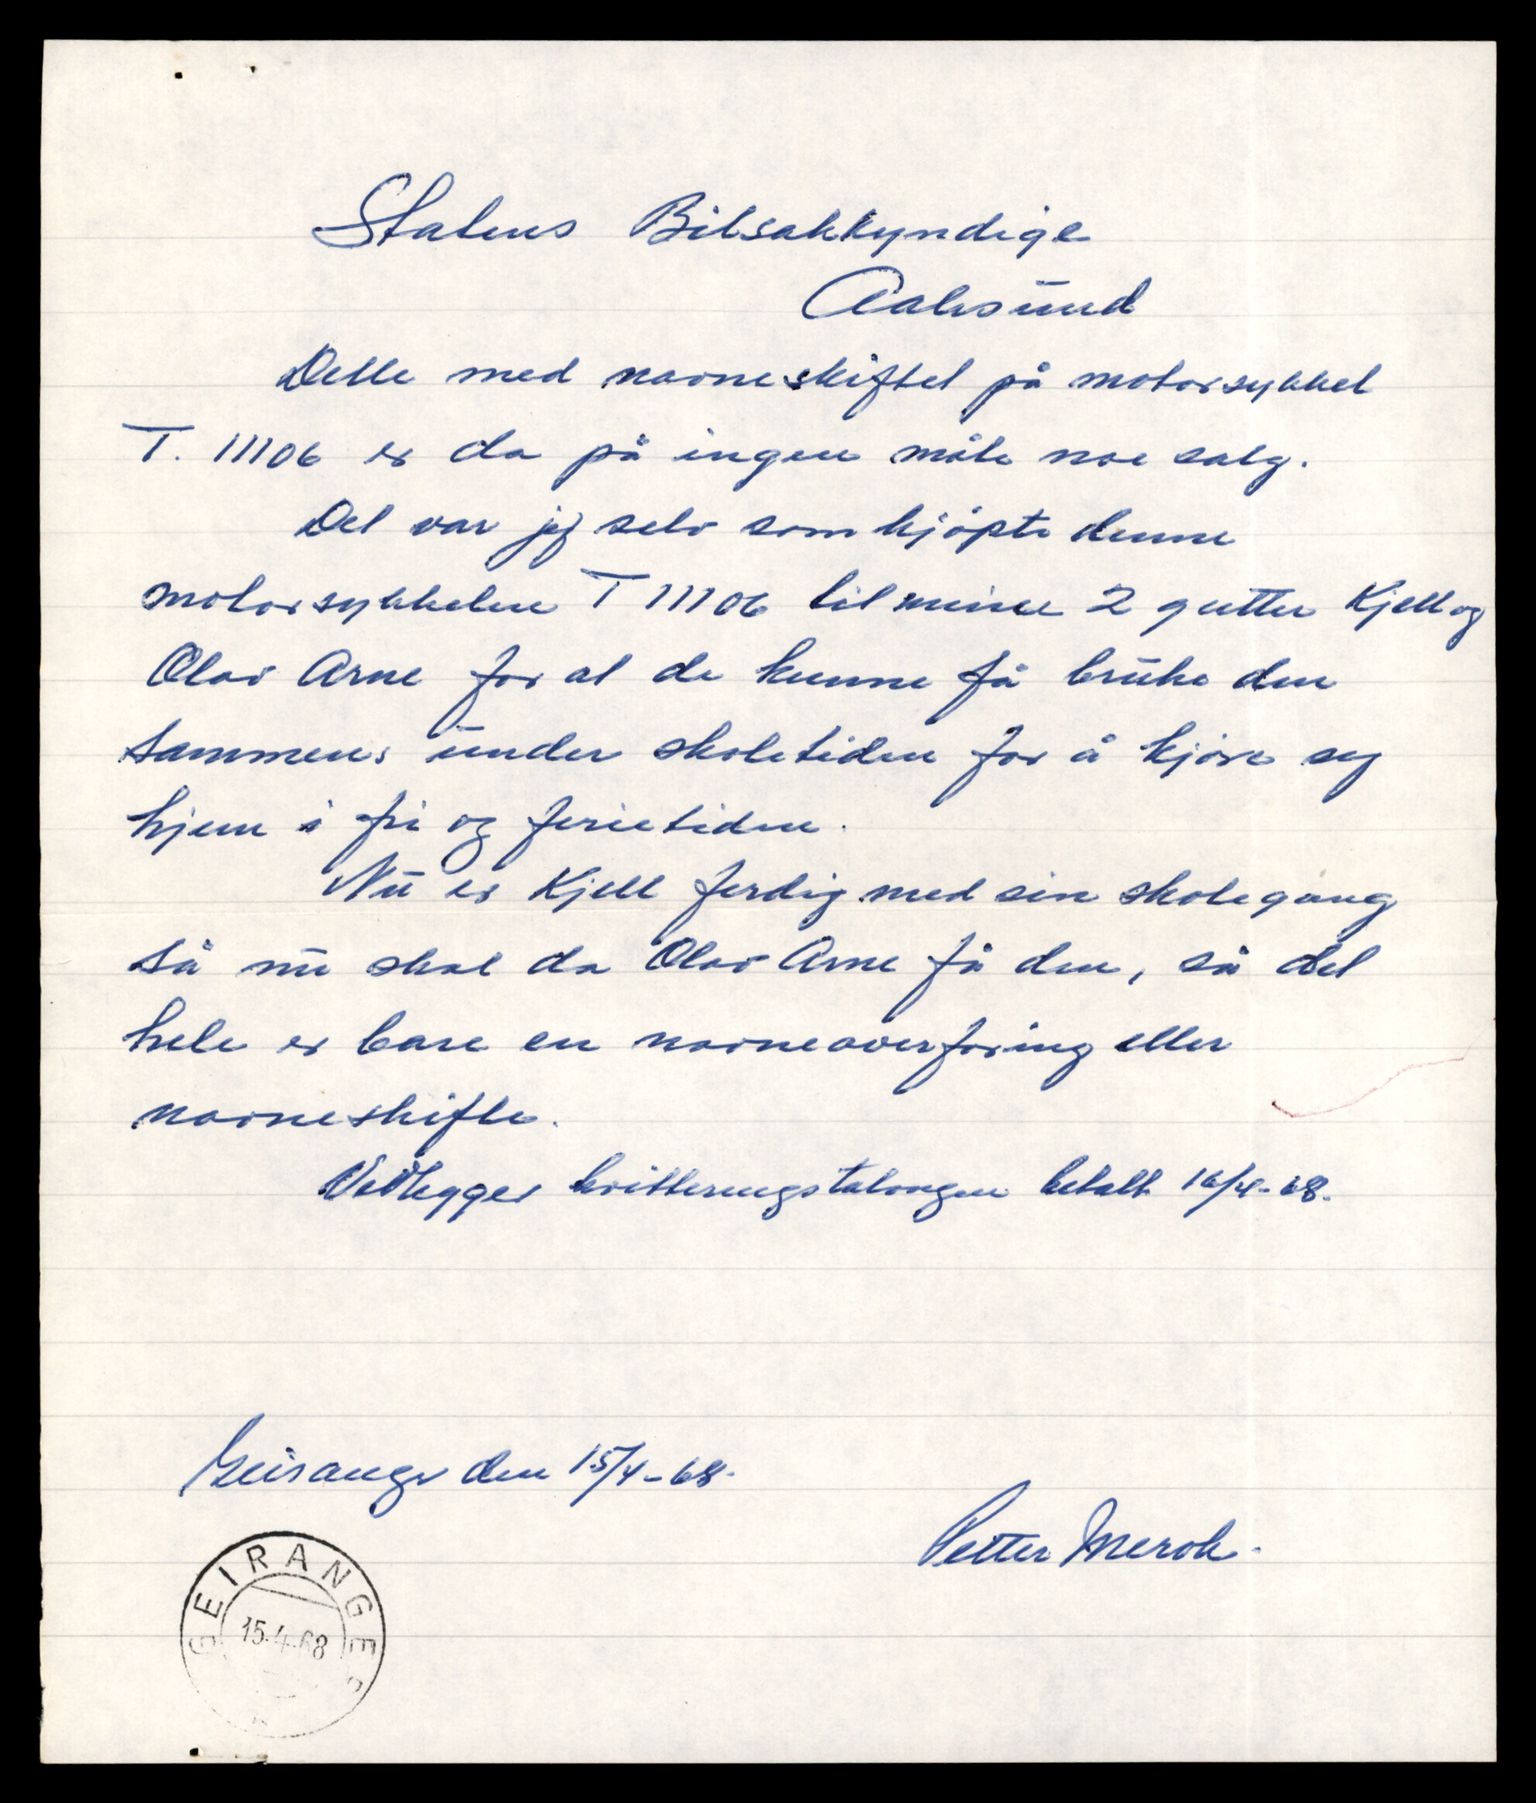 Statens Bilsakkyndige
Aalesund
Dette med navneskiftet på motorsykkel
T. 11106 er da på ingen måte noe salg.
Det var jeg selv som kjöpte denne
motorsykkelen T 11106 til mine 2 gutter Kjell og
Olav Arne for at de kunne få bruke den
sammen under skoletiden for å kjøre seg
hjem i fri og ferietiden.
Nu er Kjell ferdig med sin skolegang
så nu skal da Olav Arne få den, så det
hele er bare en navneoverforing eller
navneskifte.
Vedlegger kvitteringstalongen betalt 16/4-68.
Geiranger den 15/4-68.
Petter Merok.
GEIRANGER
15.4.68